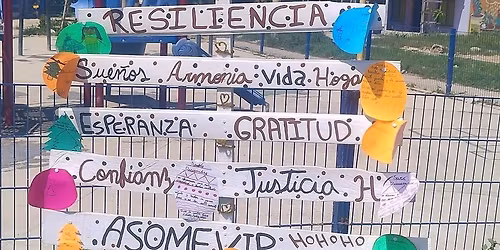 RESILIENCIA
Sueños Armonia Vida Hoga
ESPERANZA GRATITUD
Confianz Justicia H
ASOMEVID HOHOHO